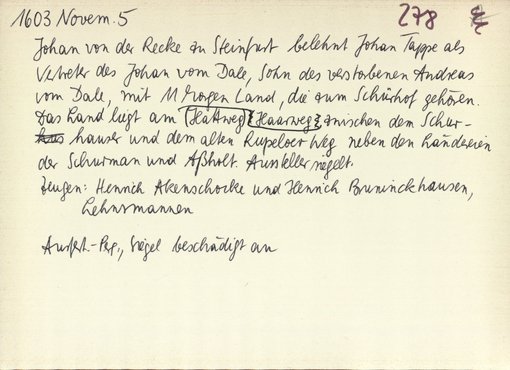 1603 Novem. 5 278
Johan von der Recke zu Steinfurt belehnt Johan Tappe als
Vertreter des Johan vom Dale, Sohn des verstorbenen Andreas
vom Dale, mit 11 Morgen Land, die zum Schürhof gehören.
Das Land liegt am HaAweg {Haarweg} zwischen dem Schur-
hauser und dem alten Rupeloer Weg neben den Ländereien
der Schurman und Aßholt. Aussteller siegelt.
Zeugen: Henrich Akenschocke und Henrich Bruninckhausen,
Lehnsmannen
Ausfert.-Perg., Siegel beschädigt an